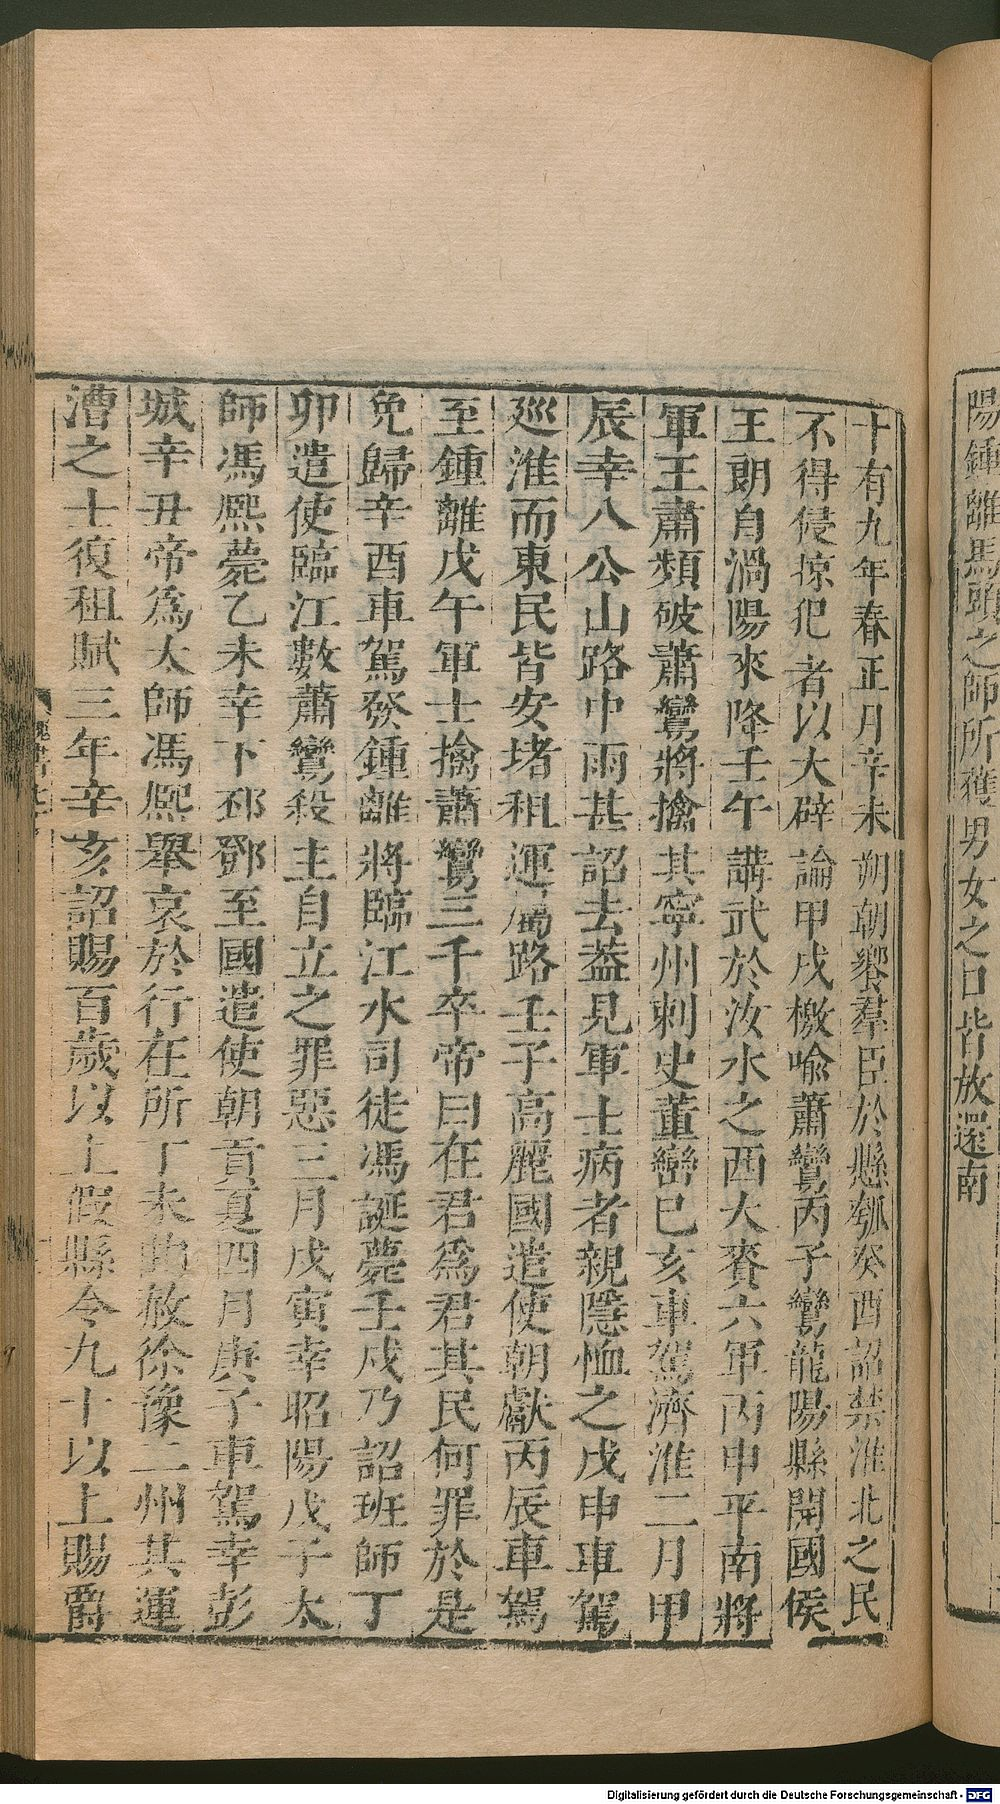 陽鍾離馬頭之師所獲男女之口皆放還南
十有九年春正月辛未朔朝饗羣臣於縣瓠癸酉詔禁淮北之民
不得侵掠犯者以大辟論甲戌檄喻蕭鸞丙子鸞龍陽縣開國侯
王朗自渦陽來降壬午講武於汝水之西大賚六軍丙申平南將
軍王肅頻破蕭鸞將擒其寧州刺史董巒巳亥車駕濟淮二月甲
辰幸八公山路中雨甚詔去蓋見軍士病者親隱恤之戊申車駕
巡淮而東民皆安堵租運屬路壬子高麗國遣使朝獻丙辰車駕
至鍾離戊午軍士擒蕭鸞三千卒帝曰在君爲君其民何罪於是
免歸辛酉車駕發鍾離將臨江水司徒馮誕薨壬戌乃詔班師丁
卯遣使臨江數蕭鸞殺主自立之罪惡三月戊寅幸昭陽戊子太
師馮熙薨乙未幸下邳鄧至國遣使朝貢夏四月庚子車駕幸彭
城辛丑帝爲太師馮熙舉哀於行在所丁未曲赦徐豫二州其運
漕之士復租賦三年辛亥詔賜百歲以上假縣令九十以上賜爵
魏書七
Digitalisierung gefördert durch die Deutsche Forschungsgemeinschaft - DFG